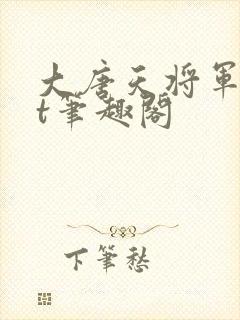 大唐天将軍
t筆趣閣
下筆愁